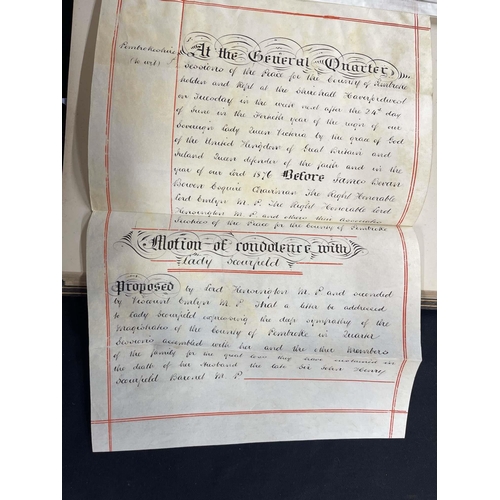 Pembrokeshire
(to wit)
At the General Quarter
Sessions of the Peace for the County of Pembroke
holden and kept at the Shirehall Haverfordwest
on Tuesday in the next week after the 24th day
of June in the Fortieth year of the reign of our
Sovereign Lady Queen Victoria by the grace of God
of the United Kingdom of Great Britain and
Ireland Queen defender of the faith and in the
year of our Lord 1876 Before James Bevan
Bowen Esquire Chairman The Right Honorable
Lord Emlyn M.P. The Right Honorable Lord
Kensington M P and others their Associates
Justices of the Peace for the County of Pembroke
Motion of condolence with
Lady Scourfield
Proposed by Lord Kensington M P and seconded
by Viscount Emlyn M P that a letter be addressed
to Lady Scourfield expressing the deep sympathy of the
Magistrates of the County of Pembroke in Quarter
Sessions assembled with her and the other Members
of the family for the great loss they have sustained in
the death of her Husband the late Sir John Henry
Scourfield Baronet M P